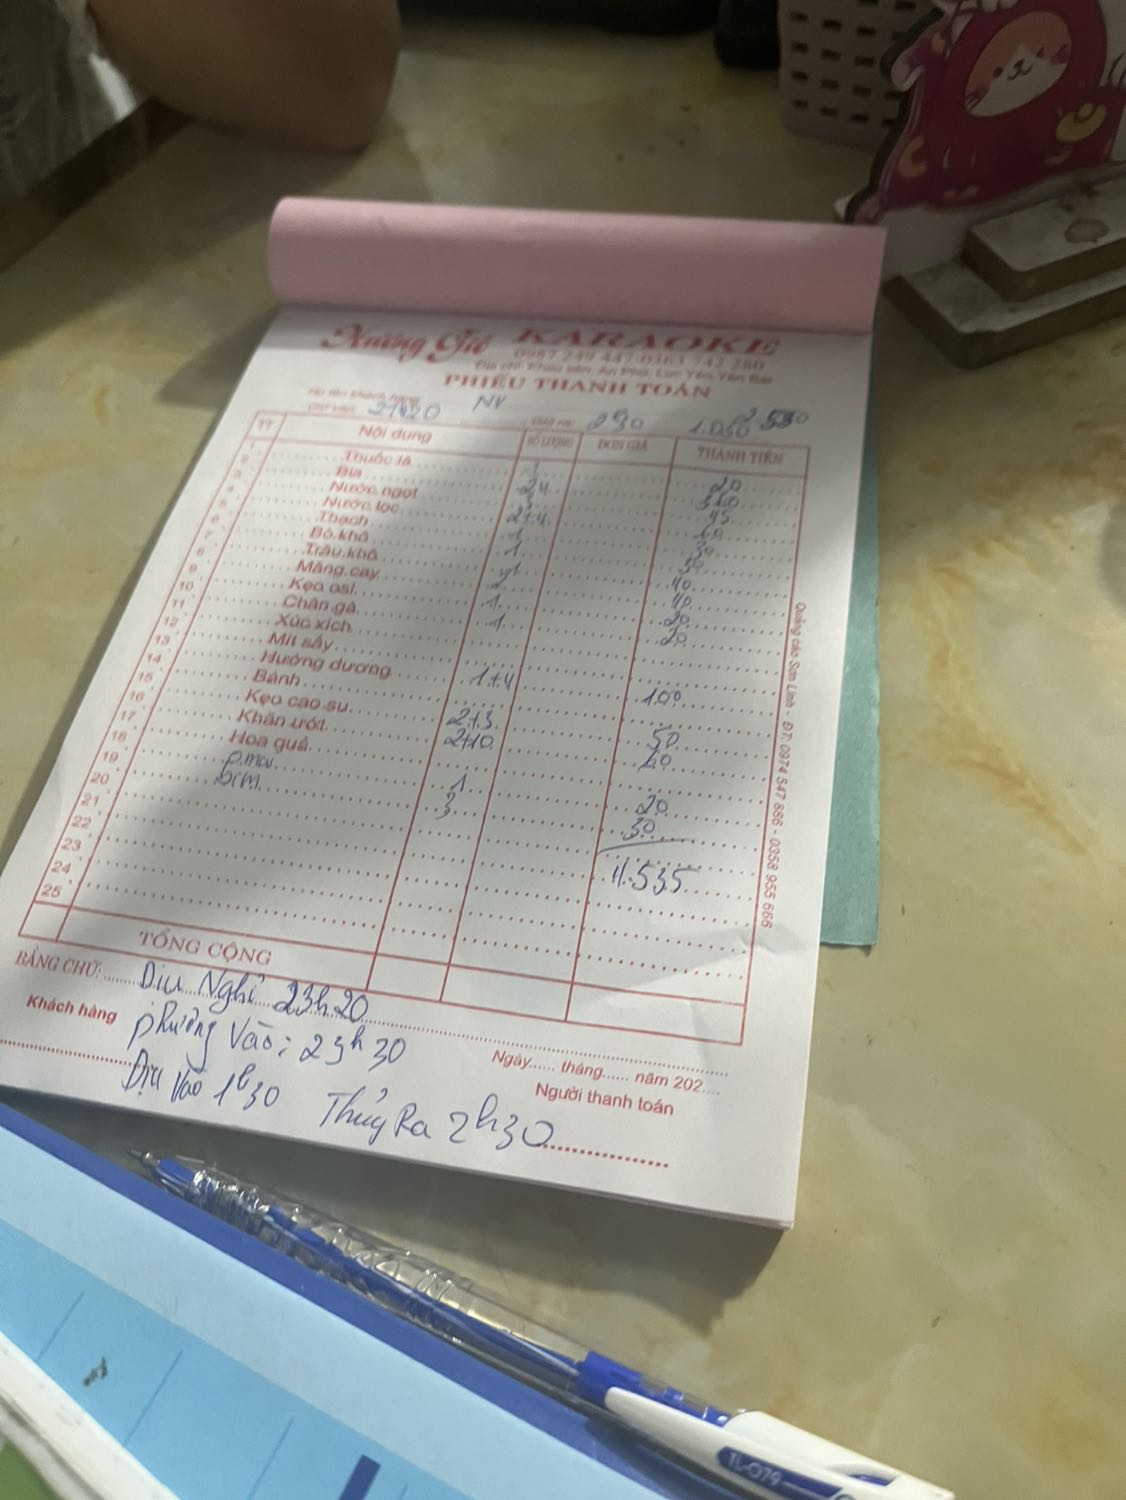 Hương Gió KARAOKE
0987 249 447-0363 742 280
Địa chỉ: Khau sén, An Phú, Lục Yên, Yên Bái
PHIẾU THANH TOÁN
Họ tên khách hàng NV
Giờ vào: 21h20 Giờ ra: 2h30 1.050
TT Nội dung SỐ LƯỢNG ĐƠN GIÁ THÀNH TIỀN
1 Thuốc lá 1 20
2 Bia 24
3 Nước ngọt 45
4 Nước lọc 2+4
5 Thạch
6 Bò khô 1
7 Trâu khô 1
8 Măng cay 40
9 Kẹo osi 40
10 Chân gà 1 20
11 Xúc xích 1 20
12 Mít sấy
13 Hướng dương
14 Bánh 1+4 100
15 Kẹo cao su
16 Khăn ướt 2+3 50
17 Hoa quả 2+10
18 1 20
19 bim 3 30
20
21 4.535
22
23
24
25
TỔNG CỘNG
BẰNG CHỮ: Dịu Nghỉ 23h20
Khách hàng phường Vào: 23h30
Ngày...... tháng...... năm 202....
Dịu Vào 1h30 Thủy Ra 2h30
Người thanh toán
Quảng cáo Sơn Linh - ĐT: 0974 547 886 - 0358 955 666
TL-079